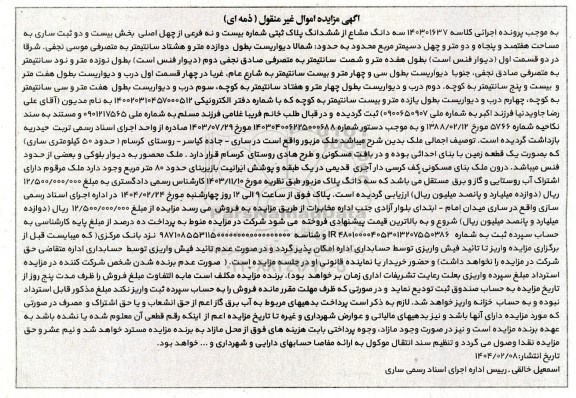 آگهی مزایده اموال غیر منقول ( ذمه ای)
به موجب پرونده اجرائی کلاسه ۱۴۰۳۰۱۶۳۷ سه دانگ مشاع از ششدانگ پلاک ثبتی شماره بیست و نه فرعی از چهل اصلی بخش بیست و دو ثبت ساری به
مساحت هفتصد و پنجاه و دو متر و چهل دسیمتر مربع محدود به حدود: شمالا دیواریست بطول دوازده متر و هشتاد سانتیمتر به متصرفی موسی نجفی. شرقا
در دو قسمت اول (دیوار فنس است) بطول هفده متر و شصت سانتیمتر به متصرفی صادق نجفی دوم (دیوار فنس است) بطول نوزده متر و نود سانتیمتر
به متصرفی صادق نجفی، جنوبا دیواریست بطول سی و چهار متر و بیست سانتیمتر به شارع عام، غربا در چهار قسمت اول درب و دیواریست بطول هفت متر
و بیست و پنج سانتیمتر به کوچه. دوم درب و دیواریست بطول چهار متر و هفتاد سانتیمتر به کوچه، سوم درب و دیواریست بطول هفت متر و سی سانتیمتر
به کوچه، چهارم درب و دیواریست بطول یازده متر و بیست سانتیمتر به کوچه که با شماره دفتر الکترونیکی ۱۴۰۰۲۰۳۱۰۴۵۷۰۰۰۵۱۲ به نام مدیون (آقای علی
رضا جاویدنیا فرزند اکبر به شماره ملی ۰۹۰۰۶۵۰۹۰۷) ثبت گردیده و در قبال طلب خانم فریبا غلامی فرزند مسلم به شماره ملی ۰۹۰۱۲۱۷۵۶۵ و مستند به سند
نکاحیه شماره ۵۷۶۶ مورخ ۱۳۸۸/۰۲/۱۲ و به موجب دستور شماره ۱۴۰۳۰۴۰۰۶۲۲۵۰۰۰۶۸۸ مورخ ۱۴۰۳/۰۷/۲۹ صادره از واحد اجرای اسناد رسمی تربت حیدریه
بازداشت گردیده است. توصیف اجمالی ملک بدین شرح میباشد ملک مزبور واقع است در ساری - جاده کیاسر - روستای کرسام (حدود ۵۰ کیلومتری ساری)
که بصورت یک قطعه زمین با بنای احداثی بوده و در بافت مسکونی و طرح هادی روستای کرسام قرار دارد. ملک محصور به دیوار بلوکی و بعضی از حدود
فنس میباشد. درون ملک بنای مسکونی کف کرسی دار آجری قدیمی در یک طبقه و پوشش ایرانیت بازیربنای حدود ۸۰ متر مربع وجود دارد ملک مرقوم دارای
اشتراک آب روستایی و گاز و برق مستقل می باشد که سه دانگ پلاک مزبور طبق نظریه مورخ ۱۴۰۳/۱۱/۱۰ کارشناس رسمی دادگستری به مبلغ ۱۲/۵۰۰/۰۰۰/۰۰۰
ریال (دوازده میلیارد و پانصد میلیون ریال) ارزیابی گردیده است. پلاک فوق از ساعت ۹ الی ۱۲ روز چهارشنبه مورخ ۱۴۰۴/۰۲/۲۴ در اداره اجرای اسناد رسمی
ساری واقع در ساری میدان امام - ابتدای بلوار آزادی جنب اداره مخابرات از طریق مزایده به فروش می رسد مزایده از مبلغ ۱۲/۵۰۰/۰۰۰/۰۰۰ ریال (دوازده
میلیارد و پانصد میلیون ریال) شروع و به بالاترین قیمت پیشنهادی فروخته می شود شرکت در مزایده منوط به پرداخت ده درصد از مبلغ پایه کارشناسی به
برگزاری مزایده واریز تا تائید فیش واریزی توسط حسابداری اداره امکان پذیر گردد و در صورت عدم تائید فیش واریزی توسط حسابداری اداره متقاضی حق
شرکت در مزایده را نخواهد داشت) و حضور خریدار یا نماینده قانونی او در جلسه مزایده است. ( صورت عدم برنده شدن شخص شرکت کننده در مزایده
استرداد مبلغ سپرده واریزی بعلت رعایت تشریفات اداری زمان بر خواهد بود). برنده مزایده مکلف است مابه التفاوت مبلغ فروش را ظرف مدت پنج روز از
تاریخ مزایده به حساب صندوق ثبت تودیع نماید و در صورتی که ظرف مهلت مقرر مانده فروش را به حساب سپرده ثبت واریز نکند مبلغ مذکور قابل استرداد
نبوده و به حساب خزانه واریز خواهد شد. لازم به ذکر است پرداخت بدهیهای مربوط به آب برق گاز اعم از حق انشعاب و یا حق اشتراک و مصرف در صورتی
که مورد مزایده دارای آنها باشد و نیز بدهیهای مالیاتی و عوارض شهرداری و غیره تا تاریخ مزایده اعم از اینکه رقم قطعی آن معلوم شده یا نشده باشد به
عهده برنده مزایده است و نیز در صورت وجود مازاد، وجوه پرداختی بابت هزینه های فوق از محل مازاد به برنده مزایده مسترد خواهد شد و نیم عشر و حق
مزایده نقدا وصول می گردد و تنظیم سند انتقال موکول به ارائه مفاصا حسابهای دارایی و شهرداری و ... خواهد بود.
تاریخ انتشار: ۱۴۰۴/۰۲/۰۸
اسمعیل خالقی - رییس اداره اجرای اسناد رسمی ساری